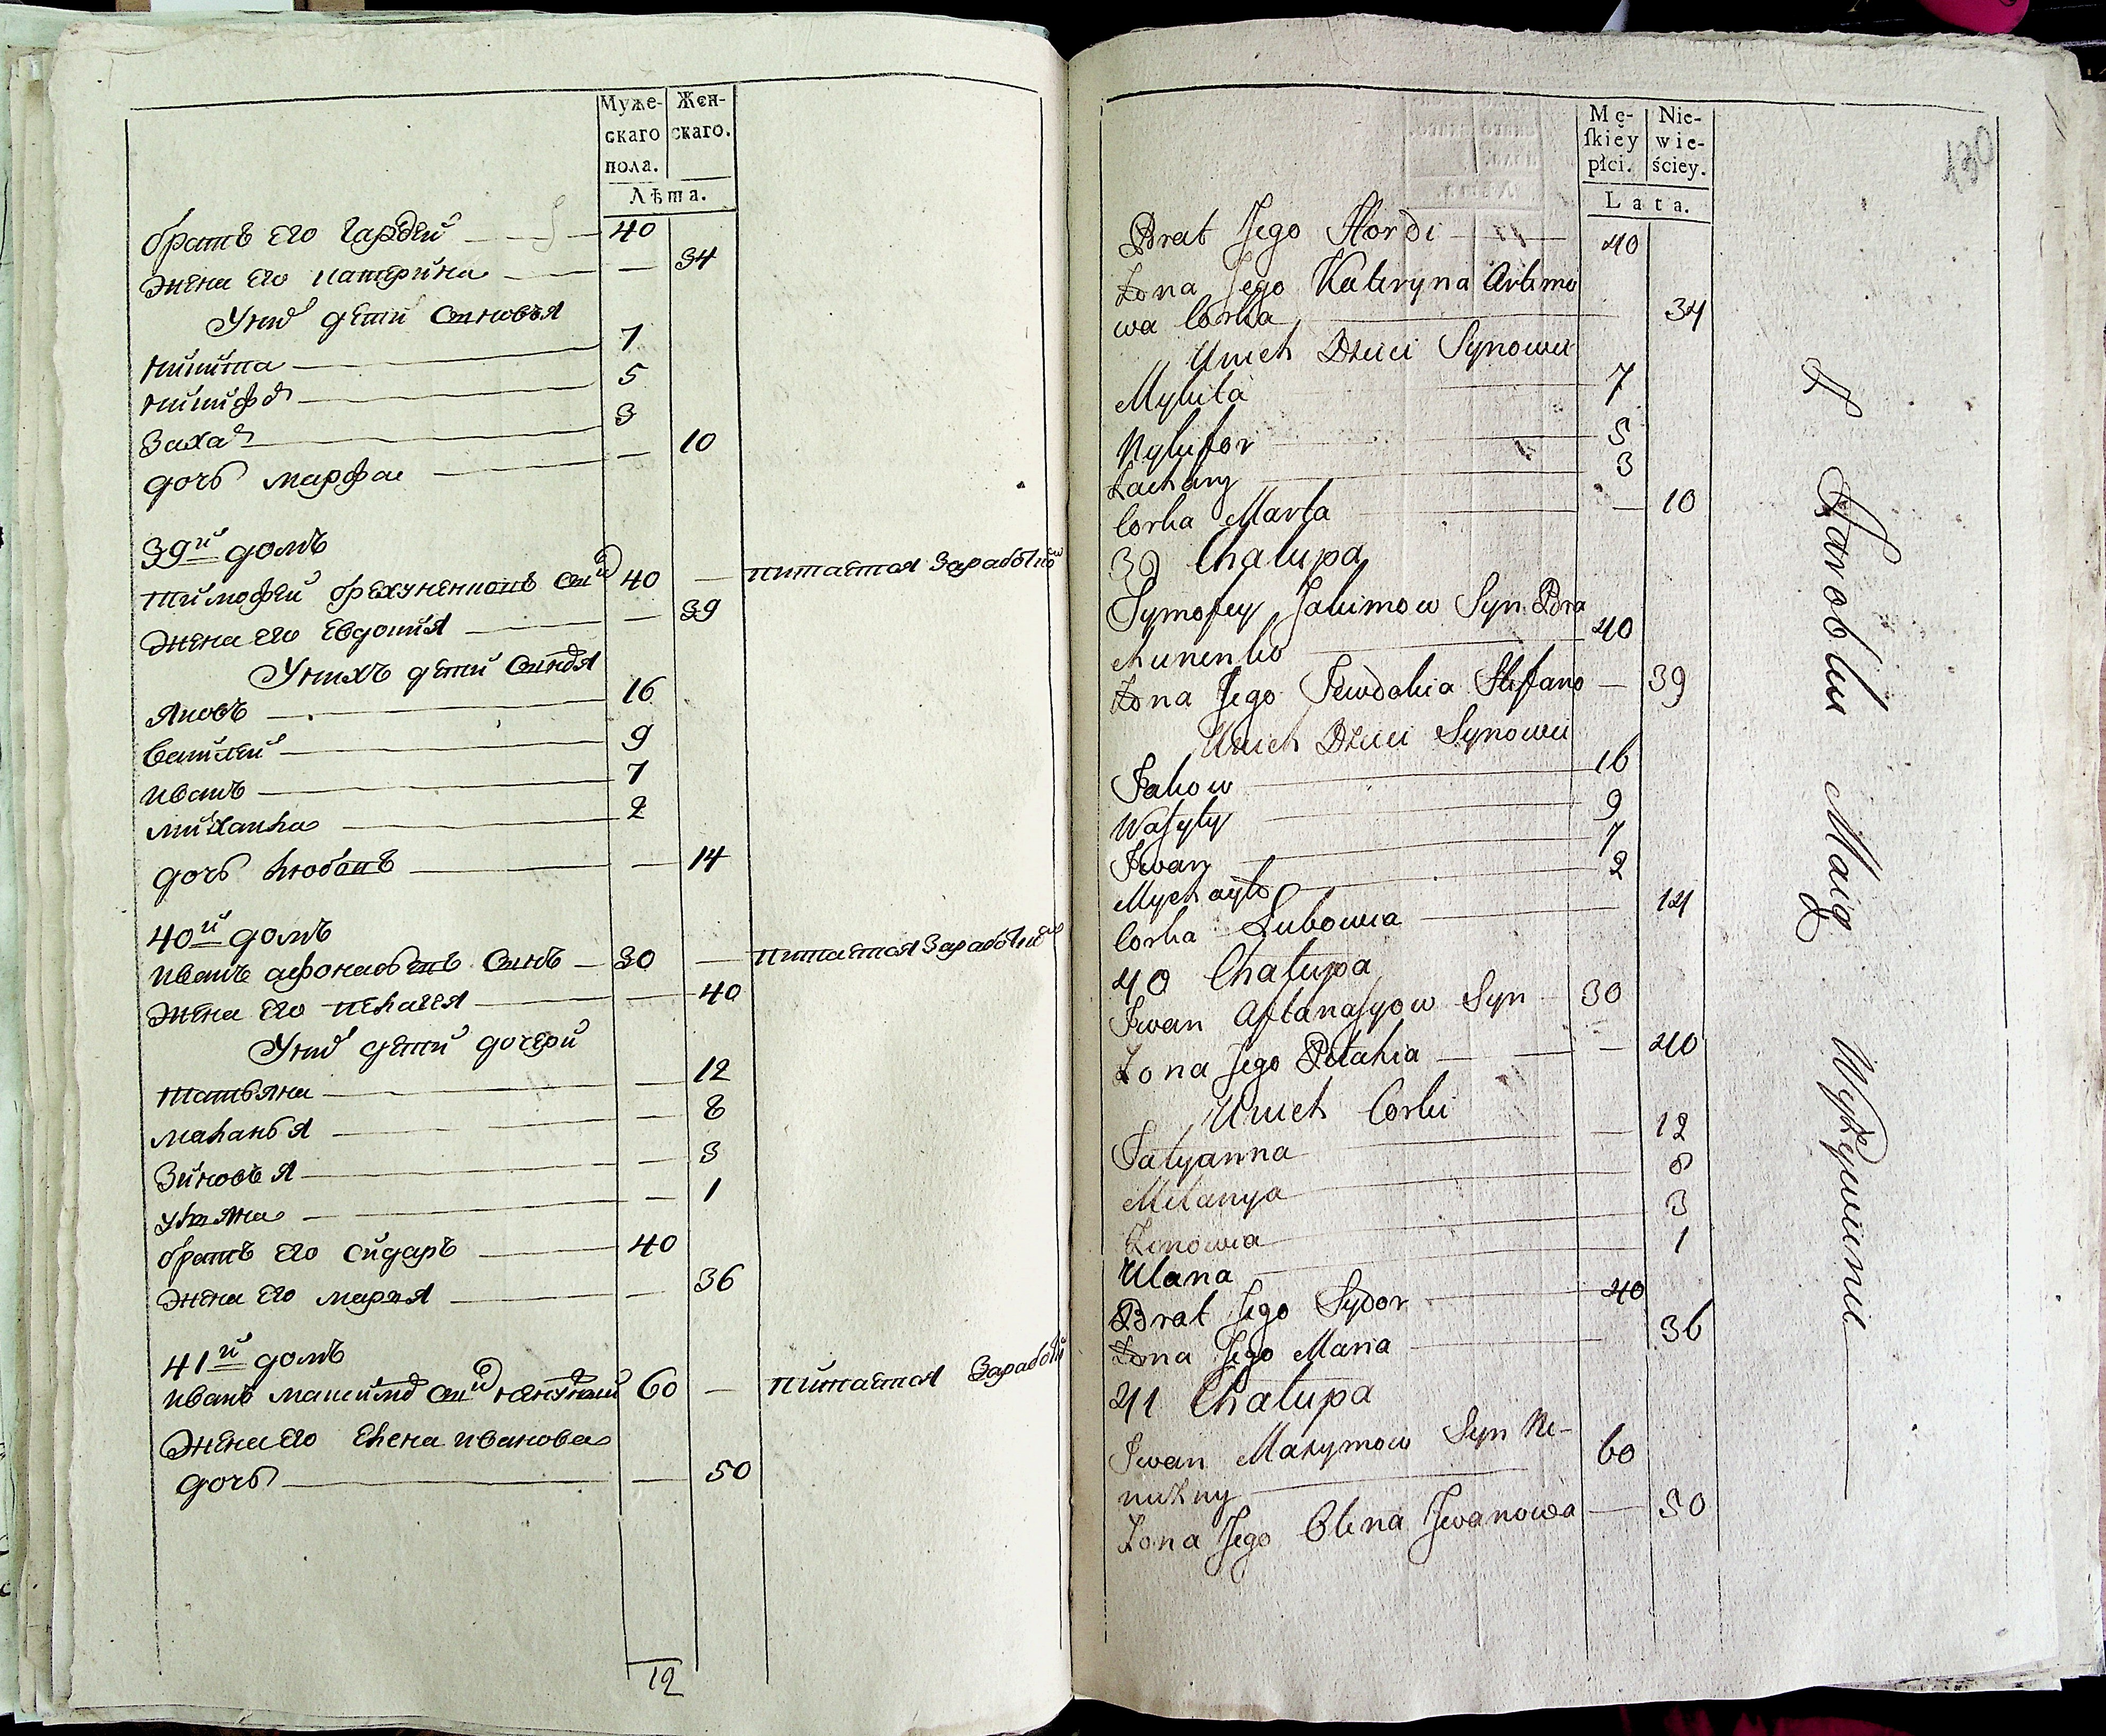 Муже-
скаго
пола.
Жен-
скаго.
Лѣта.
братъ его гардей 40
жена его катерина — 34
У них дети синовъя
никита 7
никифо 5
Заха 3
дочь марфа — 10
39й домъ
тимофей брехуненковъ син 40 — питается Заработко
жена его Евдокия — 39
У нихъ дети синовя
яковъ 16
василей 9
иванъ 7
михаила 2
дочь любовъ — 14
40й домъ
иванъ афонасьевъ синъ 30 — питается Заработко
жена его пелагея — 40
У них дети дочери
татьяна — 12
маланья — 8
Зиновья — 3
ульяна — 1
братъ его сидаръ 40
жена его марья — 36
41й домъ
иванъ максимо син ненужний 60 — питается Заработ
жена его елена иванова
дочь — 50
12
Mę-
ſkiey
płci.
Nie-
wie-
ściey.
Lata.
130
Brat Jego Hordi 40
Żona Jego Kateryna Artimo
wa Corka 34
Unich Dzieci Synowie
Mykita 7
Nykifor 5
Zachary 3
Corka Marta — 10
39 Chałupa
Tymofey Jakimow Syn Bra
chunenko 40
Żona Jego Jewdokia Stefano — 39
Unich Dzieci Synowie
Jakow 16
Wasyly 9
Jwan 7
Mychayło 2
Corka Lubowia 14
40 Chałupa
Jwan Aftanasyow Syn 30
Żona Jego Pelahia — 40
Unich Corki
Tatyanna — 12
Melanya 8
Zenowia 3
Ulana 1
Brat Jego Sydor 40
Żona Jego Maria 36
41 Chałupa
Jwan Maxymow Syn Ne-
nuzny 60
Żona Jego Olena Jwanowa — 50
Z Zarobku Maią Wyżywienie